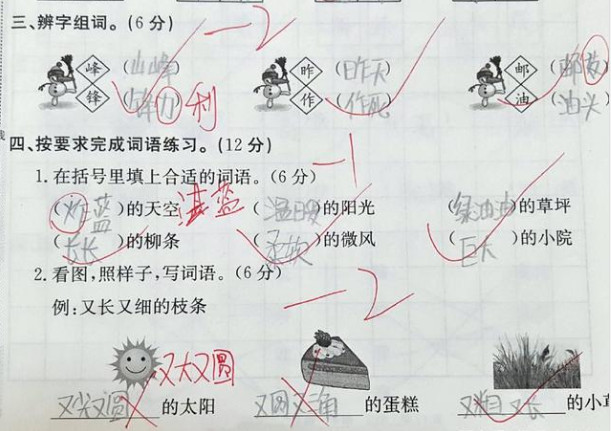 三、辨字组词。(6分) -2
峰(山峰) 昨(昨天) 邮(邮)
锋(锋力) 利 作(作) 油(油头)
四、按要求完成词语练习。(12分) -1
1. 在括号里填上合适的词语。(6分)
(蓝)的天空 湛蓝 (温暖)的阳光 (绿油油)的草坪
(长长)的柳条 (柔软)的微风 (巨大)的小院
2. 看图,照样子,写词语。(6分) -2
例:又长又细的枝条
又大又圆
又尖又圆的太阳 又圆又三角的蛋糕 又粗又长的小